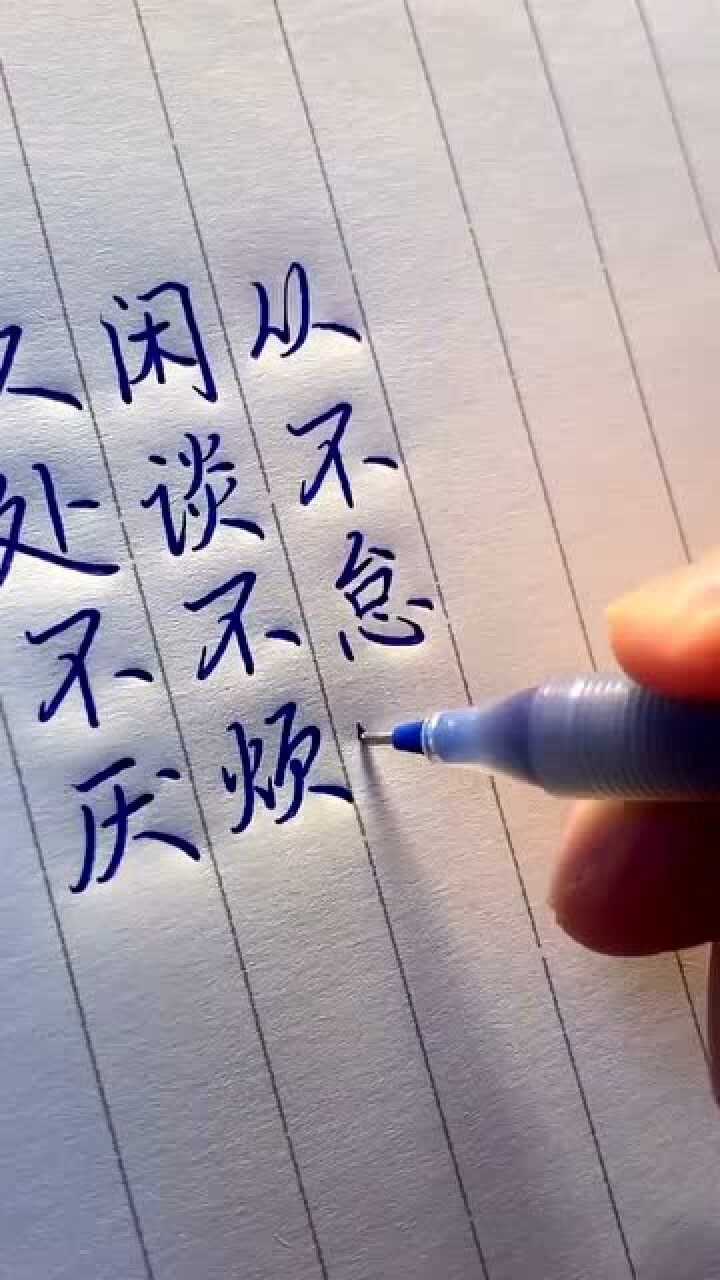 久处不厌
闲谈不烦
从不怠